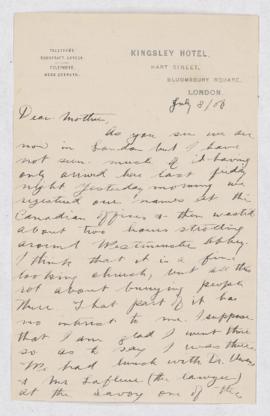 KINGSLEY HOTEL,
HART STREET,
BLOOMSBURY SQUARE,
LONDON.
July 8/06
Dear Mother,
As you see we are
now in London but I have
not seen much of it having
only arrived here last friday
night Yesterday morning we
registered our names at the
Canadian offices & then wasted
about two hours strolling
around Westminster Abbey.
I think that it is a fine
looking church, but all this
rot about burying people
there. That part of it has
no interest to me. I suppose
that I am glad I went there
so as to say I was there.
We had lunch with Dr.
& Mr Lafleur (the lawyer)
at the Savoy one of the